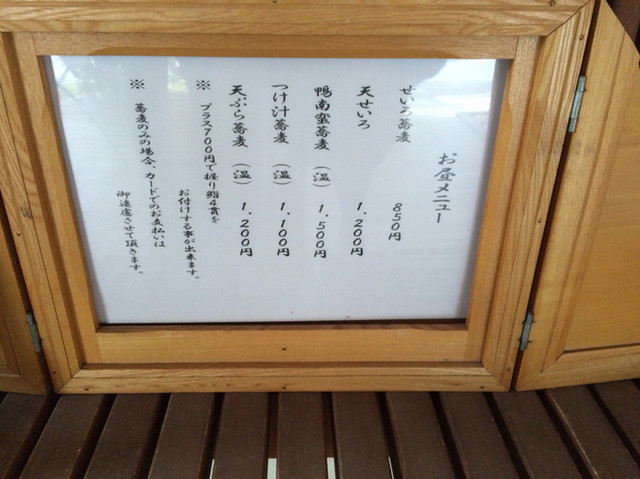 お昼メニュー
せいろ蕎麦 850円
天せいろ 1,200円
鴨南蛮蕎麦 (温) 1,500円
つけ汁蕎麦 (温) 1,100円
天ぷら蕎麦 (温) 1,200円
※ プラス700円で握り鮨4貫を
お付けする事が出来ます。
※ 蕎麦のみの場合、カードでのお支払いは
御遠慮させて頂きます。